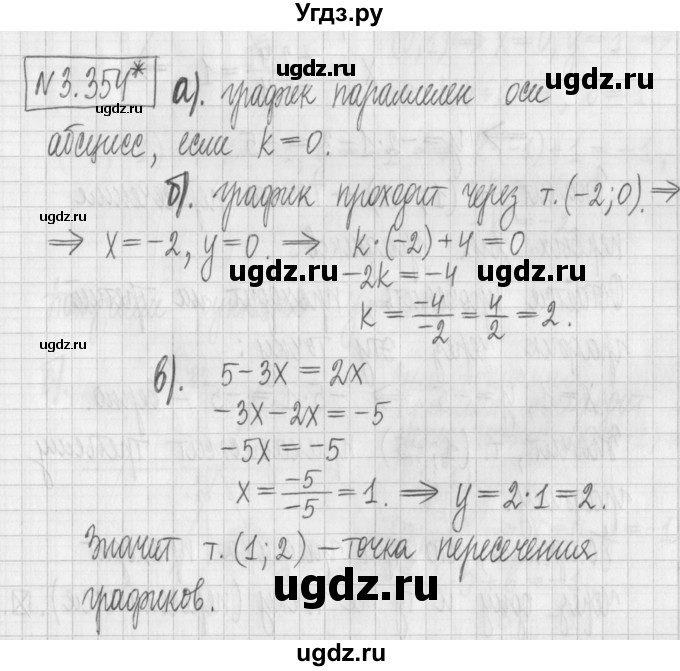 Угдз.ру
N 3.354* а). график параллелен оси
абсцисс, если k = 0.
б). график проходит через т.(-2; 0). ⇒
⇒ x = -2, y = 0. ⇒ k·(-2) + 4 = 0
-2k = -4
k = -4/-2 = 4/2 = 2.
в). 5 - 3x = 2x
-3x - 2x = -5
-5x = -5
x = -5/-5 = 1. ⇒ y = 2·1 = 2.
Значит т.(1; 2) – точка пересечения
графиков.
ugdz.ru
ugdz.ru
ugdz.ru
ugdz.ru
ugdz.ru
ugdz.ru
ugdz.ru
ugdz.ru
ugdz.ru
ugdz.ru
ugdz.ru
ugdz.ru